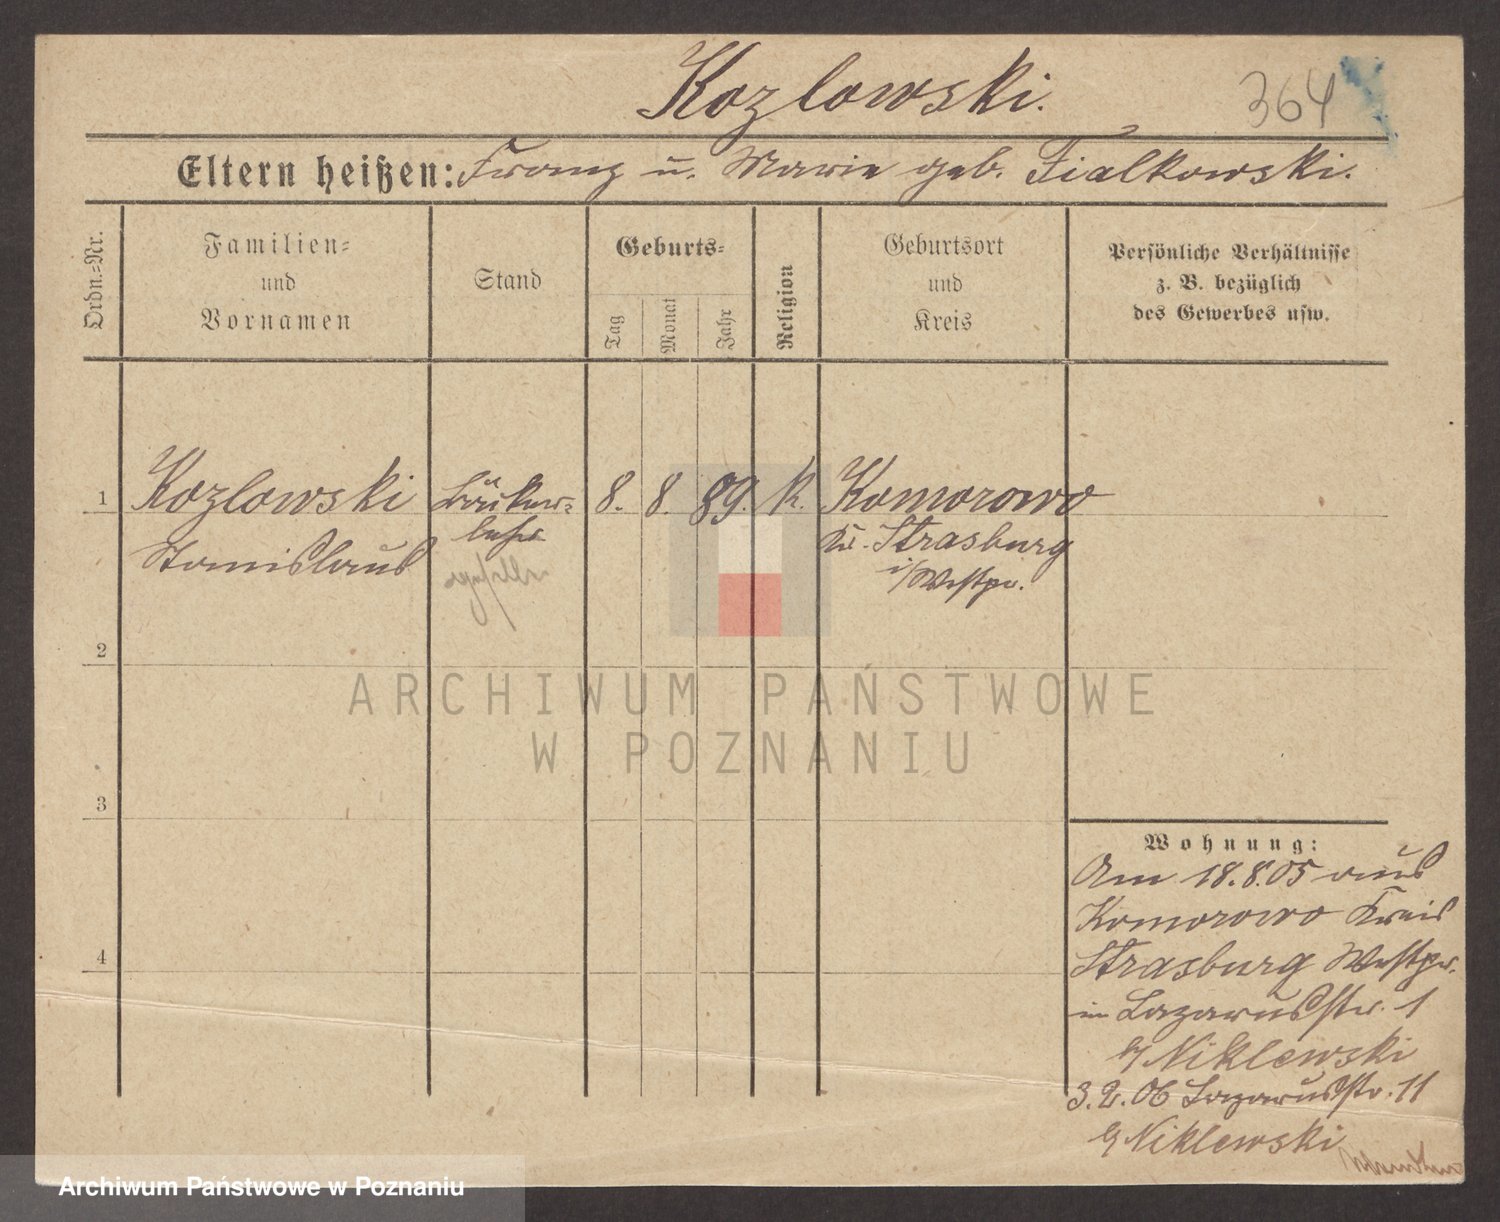 Kozlowski.
364
Eltern heißen: Franz u. Marie geb. Fialkowski.
Ordn.-Nr.
Familien-
und
Vornamen
Stand
Geburts-
Tag
Monat
Jahr
Religion
Geburtsort
und
Kreis
Persönliche Verhältnisse
z. B. bezüglich
des Gewerbes usw.
1 Kozlowski Bäcker- 8. 8. 89. k. Komorowo
lehr Kr. Strasburg
Stanislaus i/Westpr.
2
3
4
Wohnung:
Am 18.8.05 aus
Komorowo Kreis
Strasburg Westpr.
in Lazarusstr. 1
b/ Niklewski
3.2.06 Lazarusstr. 11
b/ Niklewski
ARCHIWUM PAŃSTWOWE
W POZNANIU
Archiwum Państwowe w Poznaniu